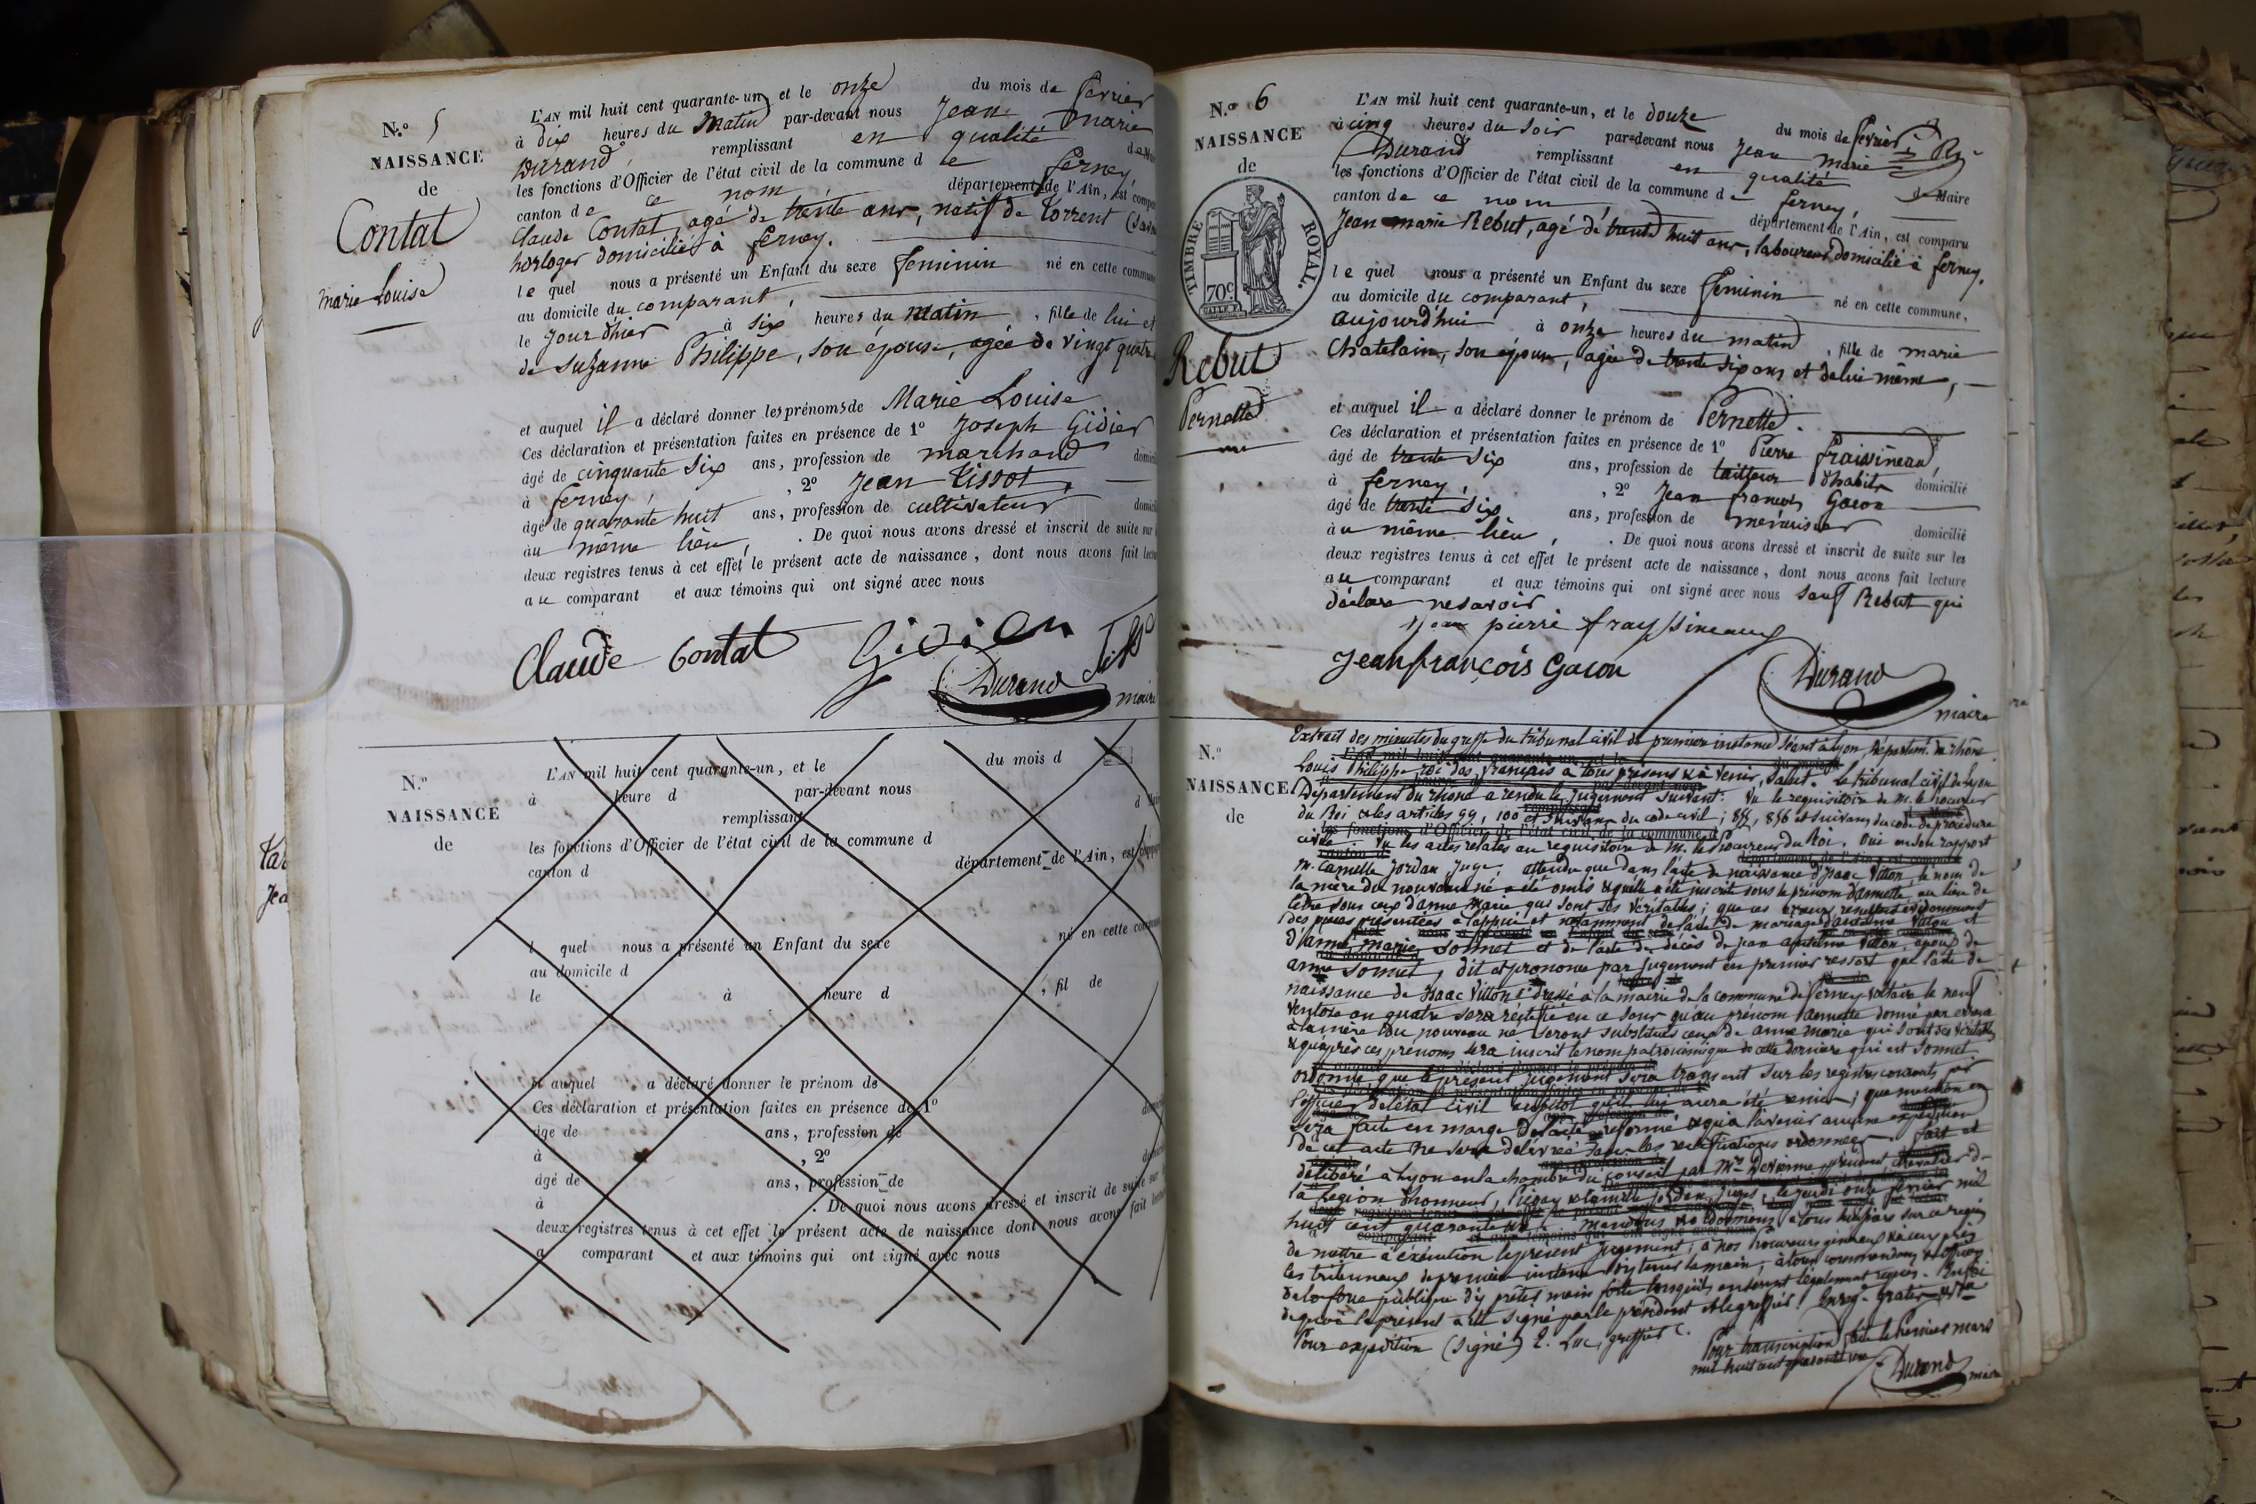 N.º 5
NAISSANCE
de
Contat
Marie Louise
L'AN mil huit cent quarante-un, et le onze du mois de fevrier
à dix heures du matin par-devant nous Jean Marie
Durand, remplissant en qualité de
les fonctions d'Officier de l'état civil de la commune de ferney,
canton de ce nom département de l'Ain, est
Claude Contat, agé de trente ans, natif de
horloger domicilié à ferney.
le quel nous a présenté un Enfant du sexe feminin né en cette commune
au domicile du comparant,
le jour d'hier à six heures du matin, fille de lui et
de Suzanne Philippe, son épouse, agée de vingt quatre
et auquel il a déclaré donner les prénoms de Marie Louise
Ces déclaration et présentation faites en présence de 1º Joseph Gidier
âgé de cinquante six ans, profession de marchand
à ferney, , 2º Jean Tissot,
âgé de quarante huit ans, profession de cultivateur
au même lieu, . De quoi nous avons dressé et inscrit de suite sur
deux registres tenus à cet effet le présent acte de naissance, dont nous avons fait
au comparant et aux témoins qui ont signé avec nous
Claude Contat
Durand
maire
N.º
NAISSANCE
de
L'AN mil huit cent quarante-un, et le du mois d
à heure d par-devant nous
remplissant
les fonctions d'Officier de l'état civil de la commune d
canton d département de l'Ain, est
l quel nous a présenté un Enfant du sexe né en cette
au domicile d
le à heure d , fil de
et auquel a déclaré donner le prénom de
Ces déclaration et présentation faites en présence de 1º
âge de ans, profession de
à , 2º
âgé de ans, profession de
à . De quoi nous avons dressé et inscrit de suite sur
deux registres tenus à cet effet le présent acte de naissance dont nous avons fait
a comparant et aux témoins qui ont signé avec nous
N.º 6
NAISSANCE
de
TIMBRE ROYAL.
70 c.
Rebut
Pernette
L'AN mil huit cent quarante-un, et le douze du mois de fevrier
à cinq heures du soir par-devant nous Jean Marie
Durand remplissant en qualité de Maire
les fonctions d'Officier de l'état civil de la commune de ferney,
canton de ce nom, département de l'Ain, est comparu
Jean Marie Rebut, agé de trente huit ans, laboureur domicilié à ferney.
le quel nous a présenté un Enfant du sexe feminin né en cette commune,
au domicile du comparant,
aujourd'hui à onze heures du matin, fille de Marie
Chatelain, son épouse, agée de trente six ans et de lui même,
et auquel il a déclaré donner le prénom de Pernette.
Ces déclaration et présentation faites en présence de 1º Pierre
âgé de trente six ans, profession de tailleur d'habits domicilié
à ferney, , 2º Jean françois Gacon
âgé de trente six ans, profession de menuisier domicilié
au même lieu, . De quoi nous avons dressé et inscrit de suite sur les
deux registres tenus à cet effet le présent acte de naissance, dont nous avons fait lecture
au comparant et aux témoins qui ont signé avec nous sauf Rebut qui
déclare ne savoir
Jean François Gacon
Durand
maire
N.º
NAISSANCE
de
Extrait des minutes du greffe du tribunal civil de premiere instance séant à Lyon, départem.t du rhône.
Louis Philippe, roi des français à tous présens et à venir, Salut. Le tribunal civil de Lyon
Département du rhône a rendu le jugement suivant: Vu le requisitoire de M. le Procureur
du Roi et les articles 99, 100 et suivans du code civil; 855, 856 et suivans du code de procédure
civile Vu les actes relatés au requisitoire de M. le Procureur du Roi. Oui en son rapport
M. Camille Jordan Juge; attendu que dans l'acte de naissance d'Isaac Villon, le nom de
la mère du nouveau né a été omis et qu'elle a été inscrit sous le prénom d'annette, au lieu de
l'être sous ceux d'anne Marie qui sont ses véritables; que ces erreurs résultent évidemment
des pièces présentées à l'appui et notamment de l'acte de mariage d'antoine Villon et
d'anne marie Sonnet et de l'acte de décès de Jean antoine Villon, époux de
anne Sonnet, dit et prononce par jugement en premier ressort que l'acte de
naissance de Isaac Villon dressé à la mairie de la commune de ferney voltaire le neuf
ventose an quatre sera rectifié en ce sens qu'au prénom d'annette donné par erreur
à la mère du nouveau né seront substitués ceux de anne marie qui sont ses véritables
et qu'après ces prénoms sera inscrit le nom patronimique de cette dernière qui est Sonnet
ordonne que le présent jugement sera transcrit sur les registres courants par
l'officier de l'état civil aussitôt qu'il lui aura été remis; que mention en
sera faite en marge de l'acte réformé et qu'à l'avenir aucune expédition
de cet acte ne sera délivrée sans les rectifications ordonnées. Fait et
délibéré à Lyon en la chambre du conseil par Mrs. Devienne président chevalier de
la Légion d'honneur, et Camille Jordan, Juges, le jeudi onze février mil
huit cent quarante un. Mandons et ordonnons à tous huissiers sur ce requis
de mettre à exécution le présent jugement; à nos Procureurs généraux et à ceux près
les tribunaux de première instance d'y tenir la main, à tous commandans et officiers
de la force publique d'y prêter main forte lorsqu'ils en seront légalement requis. En foi
de quoi le présent a été signé par le président et le greffier.
Pour expédition (signé) E. Luc, greffier
Pour transcription faite le Premier mars
mil huit cent quarante un
Durand maire